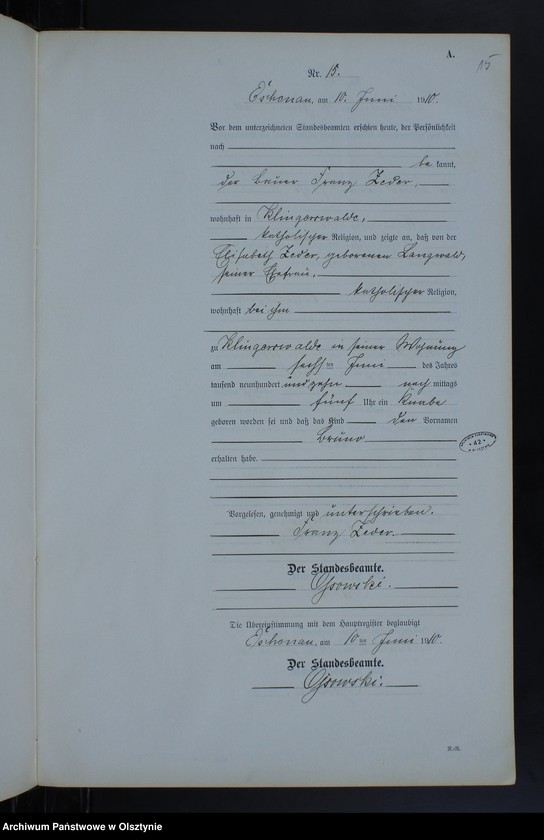 A.
15
Nr. 15.
Eschenau, am 10. Juni 1910.
Vor dem unterzeichneten Standesbeamten erschien heute, der Persönlichkeit
nach
be kannt,
der Bauer Franz Zeder,
wohnhaft in Klingerswalde,
katholischer Religion, und zeigte an, daß von der
Elisabeth Zeder, geborenen Langwald,
seiner Ehefrau,
katholischer Religion,
wohnhaft bei ihm
zu Klingerswalde in seiner Wohnung
am sechs ten Juni des Jahres
tausend neunhundert und zehn nach mittags
um fünf Uhr ein Knabe
geboren worden sei und daß das Kind den Vornamen
Bruno
erhalten habe.
Vorgelesen, genehmigt und unterschrieben.
Franz Zeder.
Der Standesbeamte.
Osowski.
Die Übereinstimmung mit dem Hauptregister beglaubigt
Eschenau, am 10 ten Juni 1910.
Der Standesbeamte.
Osowski.
Archiwum Państwowe w Olsztynie